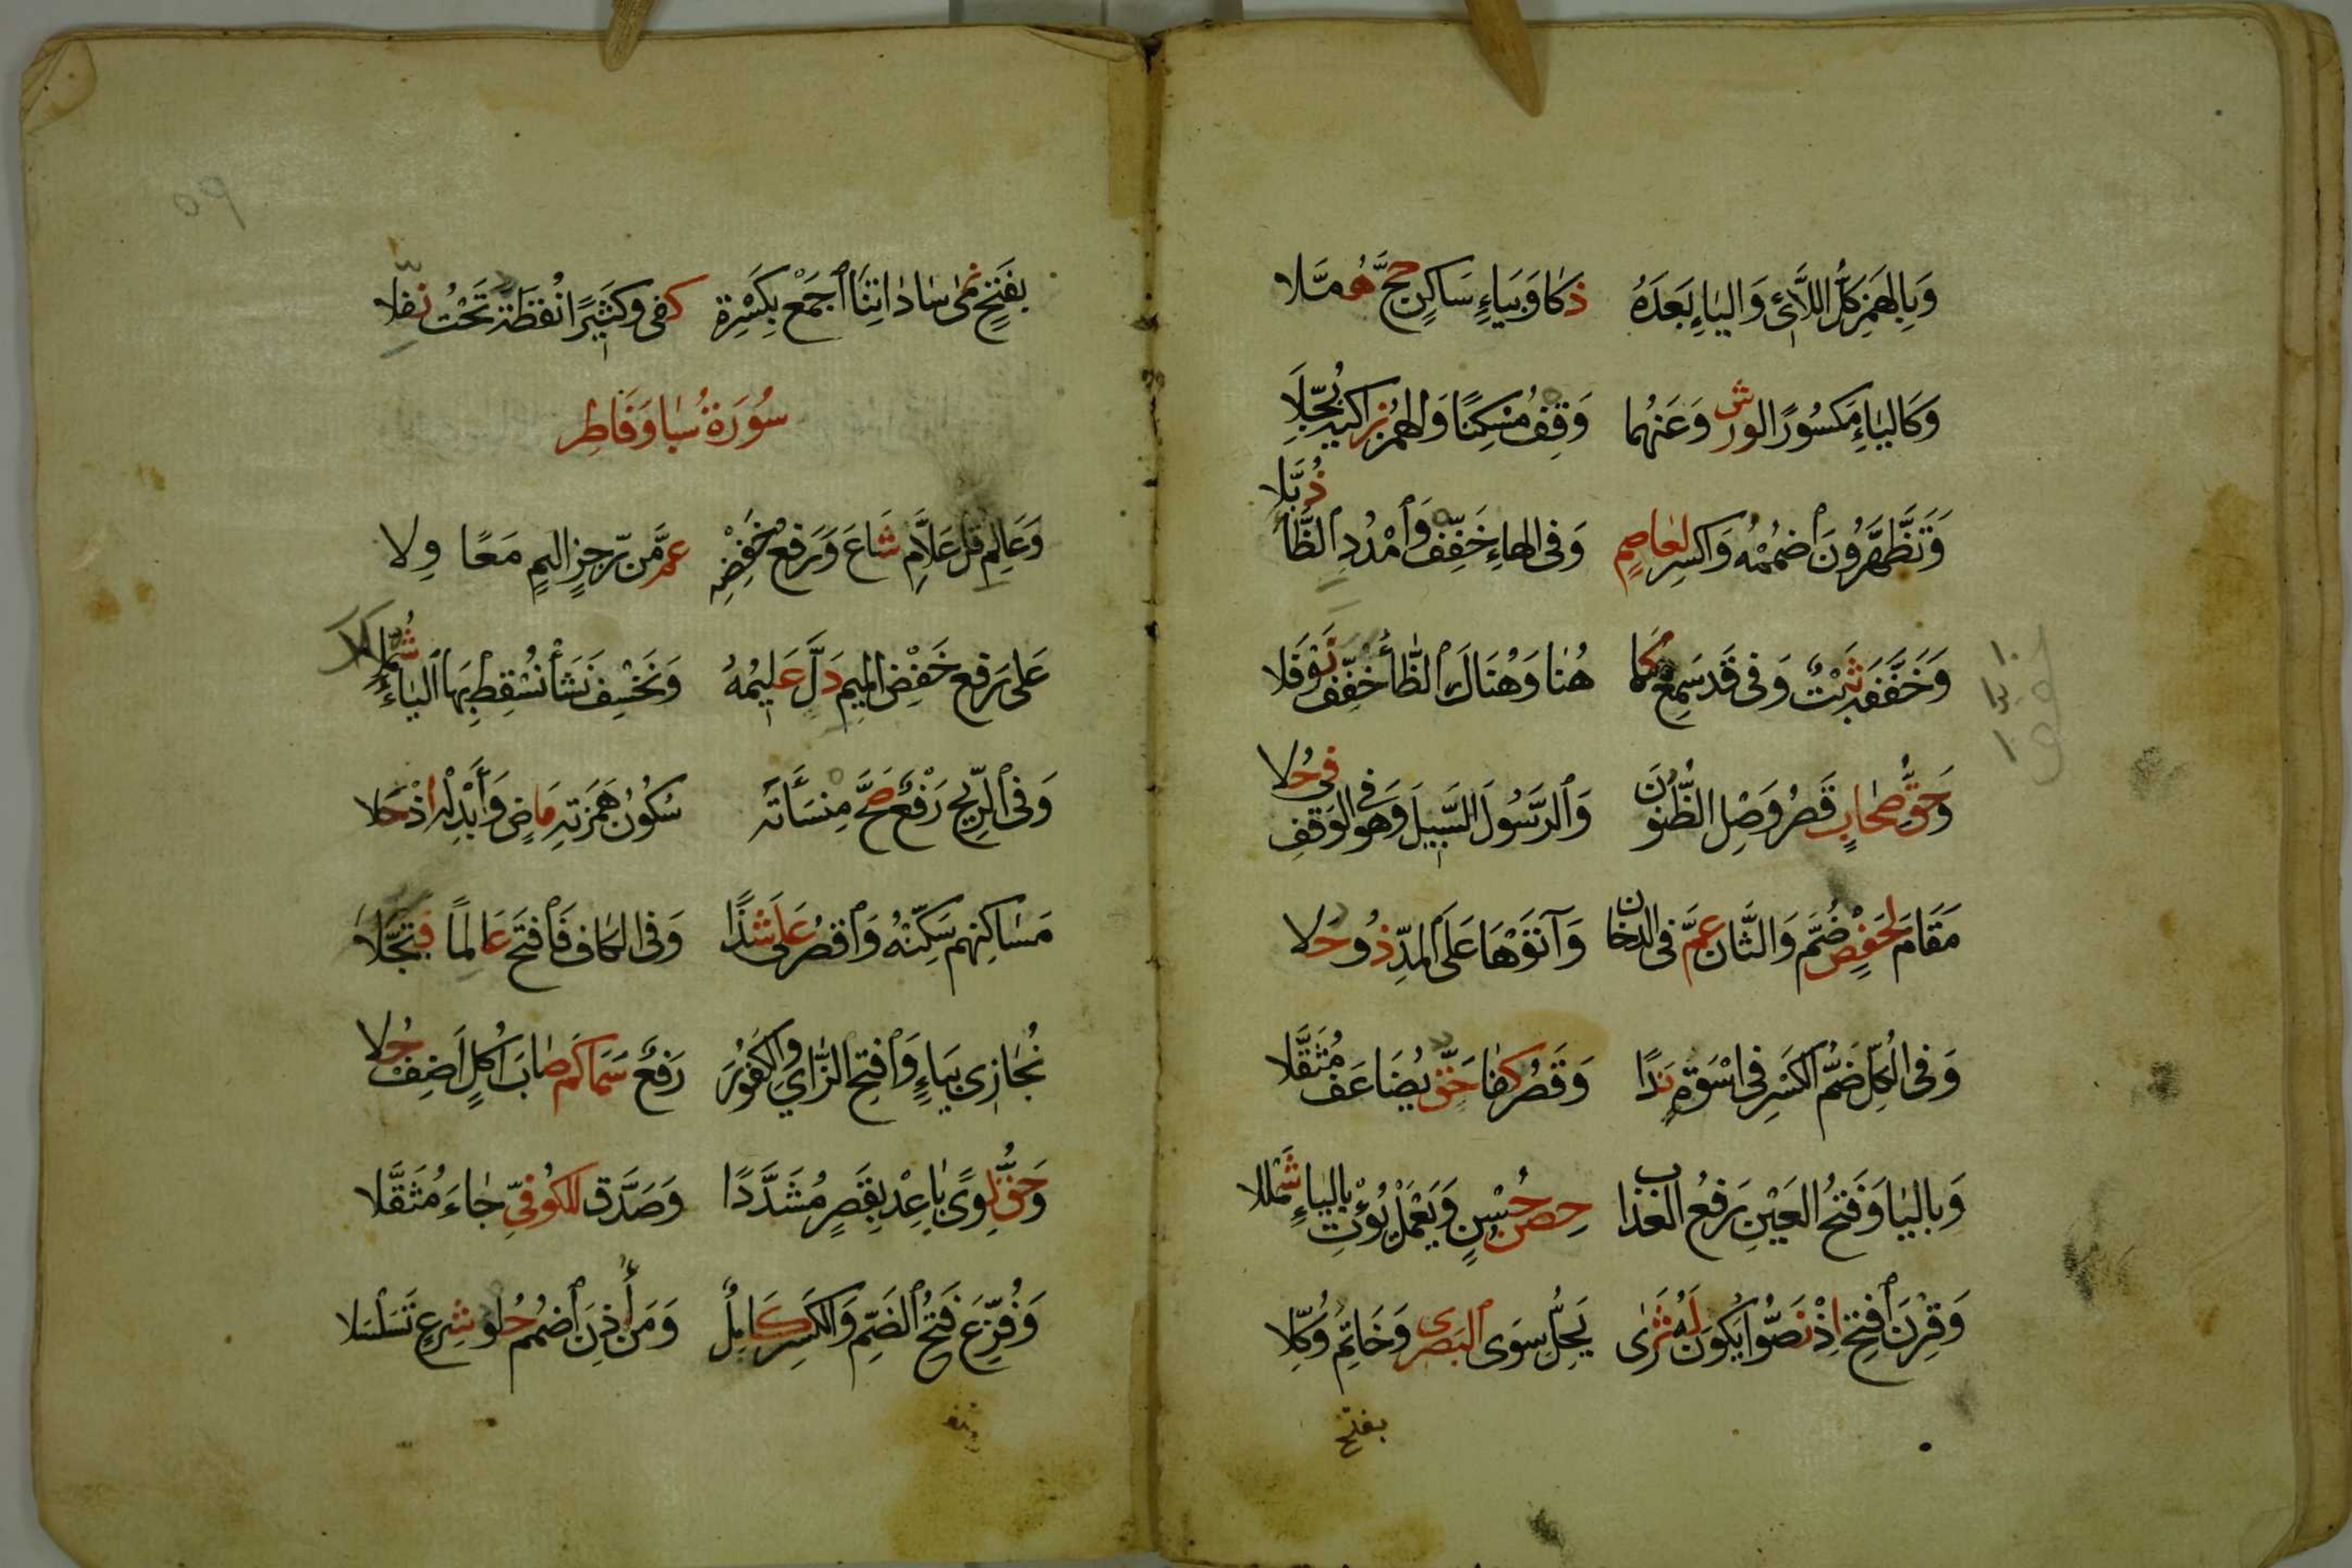 وَبِالْهَمْزِ كُلُّ اللَّائِ وَالْيَاءِ بَعْدَهُ ذَكَا وَبِيَاءٍ سَاكِنٍ حَجَّ هُمَّلَا
وَكَالْيَاءِ مَكْسُورًا لِوَرْشٍ وَعَنْهُمَا وَقِفْ مُسْكِنًا وَالْهَمْزُ زَاكِيهِ بُجِّلَا
وَتَظَّهَّرُونَ اضْمُمْهُ وَاكْسِرْ لِعَاصِمٍ وَفِي الْهَاءِ خَفِّفْ وَامْدُدِ الظَّاءَ ذُبَّلَا
وَخَفَّفَهُ ثَبْتٌ وَفِي قَدْ سَمِعْ كَمَا هُنَا وَهُنَاكَ الظَّاءُ خُفِّفَ نَوْفَلَا
وَحَقُّ صِحَابٍ قَصْرُ وَصْلِ الظُّنُونَ وَالرَّسُولَ السَّبِيلَ وَهْوَ فِي الْوَقْفِ فِي حُلَا
مَقَامَ لِحَفْصٍ ضُمَّ وَالثَّانِ عَمَّ فِي الدُّخَانِ وَآتَوْهَا عَلَى الْمَدِّ ذُو حَلَا
وَفِي الْكُلِّ ضَمُّ الْكَسْرِ فِي اسْوَةٍ نَدًا وَقَصْرُ كِفَا حَقٍّ يُضَاعَفْ مُثَقَّلَا
وَبِالْيَا وَفَتْحُ الْعَيْنِ رَفْعُ الْعَذَابِ حِصْنُ حُسْنٍ وَيَعْمَلْ يُؤْتِ بِالْيَاءِ شَمْلَلَا
وَقِرْنَ افْتَحْ اِذْ نَصُّوا يَكُونَ لَهُ ثَرَى يَحِلُّ سِوَى الْبَصْرِي وَخَاتِمَ وُكِّلَا
بفتح
بِفَتْحٍ نَمَى سَادَاتِنَا اجْمَعْ بِكَسْرَةٍ كَفَى وَكَثِيرًا نُقْطَةٌ تَحْتُ نُفِّلَا
سُورَةُ سَبَا وَفَاطِر
وَعَالِمِ قُلْ عَلَّامِ شَاعَ وَرَفْعُ خَفْضِهِ عَمَّ مِنْ رِجْزٍ اَلِيمٍ مَعًا وِلَا
عَلَى رَفْعِ خَفْضِ الْمِيمِ دَلَّ عَلِيمُهُ وَنَخْسِفْ نَشَأْ نُسْقِطْ بِهَا الْيَاءُ شَمْلَلَا
وَفِي الرِّيحَ رَفْعٌ صَحَّ مِنْسَأَتَهْ سُكُونُ هَمْزَتِهِ مَاضٍ وَأَبْدِلْهُ اِذْ حَلَا
مَسَاكِنِهِمْ سَكِّنْهُ وَاقْصُرْ عَلَى شَذًا وَفِي الْكَافِ فَافْتَحْ عَالِمًا فَتُبَجَّلَا
نُجَازِي بِيَاءٍ وَافْتَحِ الزَّايَ وَالْكَفُورَ رَفْعٌ سَمَا كَمْ صَابَ اُكْلٍ اَضِفْ حُلَا
وَحَقُّ لِوًى بَاعِدْ بِقَصْرٍ مُشَدَّدًا وَصَدَّقَ لِلْكُوفِيِّ جَاءَ مُثَقَّلَا
وَفُزِّعَ فَتْحُ الضَّمِّ وَالْكَسْرِ كَامِلٌ وَمَنْ أَذِنَ اضْمُمْ حُلْوَ شَرْعٍ تَسَلْسَلَا